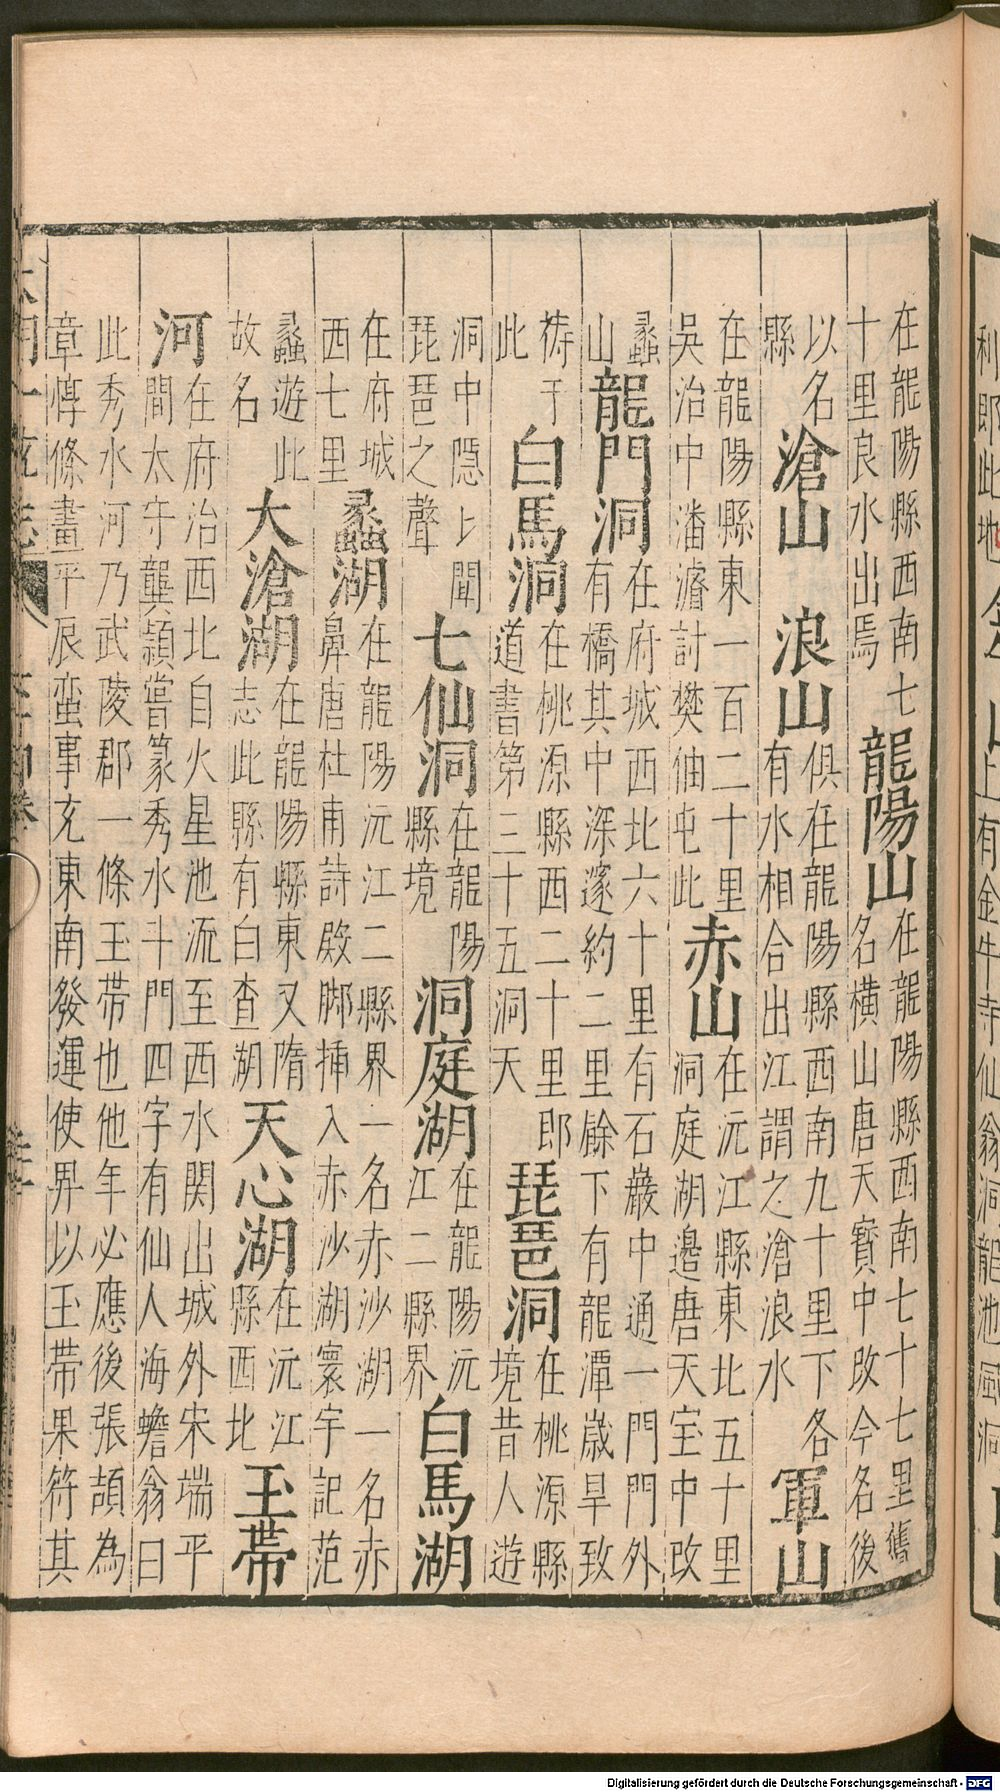 利即此地
上有金牛寺仙翁洞龍池風洞
在龍陽縣西南七十里良水出焉 龍陽山 在龍陽縣西南七十七里舊名橫山唐天寶中改今名後
以名縣 滄山 浪山 俱在龍陽縣西南九十里下各有水相合出江謂之滄浪水 軍山
在龍陽縣東一百二十里吳治中潘濬討樊伷屯此 赤山 在沅江縣東北五十里洞庭湖邉唐天宝中改
蠡山 龍門洞 在府城西北六十里有石巖中通一門門外有橋其中深邃約二里餘下有龍潭歲旱致
祷于此 白馬洞 在桃源縣西二十里郎道書第三十五洞天 琵琶洞 在桃源縣境昔人遊
洞中隱卜聞琵琶之聲 七仙洞 在龍陽縣境 洞庭湖 在龍陽沅江二縣界 白馬湖
在府城西七里 蠡湖 在龍陽沅江二縣界一名赤沙湖一名赤鼻唐杜甫詩殿脚挿入赤沙湖寰宇記范
蠡遊此故名 大滄湖 在龍陽縣東又隋志此縣有白查湖 天心湖 在沅江縣西北 玉帶
河 在府治西北自火星池流至西水関出城外宋端平間太守龔頴嘗篆秀水斗門四字有仙人海蟾翁曰
此秀水河乃武陵郡一條玉帶也他年必應後張頡為章惇條畫平辰蛮事充東南發運使界以玉帶果符其
Digitalisierung gefördert durch die Deutsche Forschungsgemeinschaft - DFG